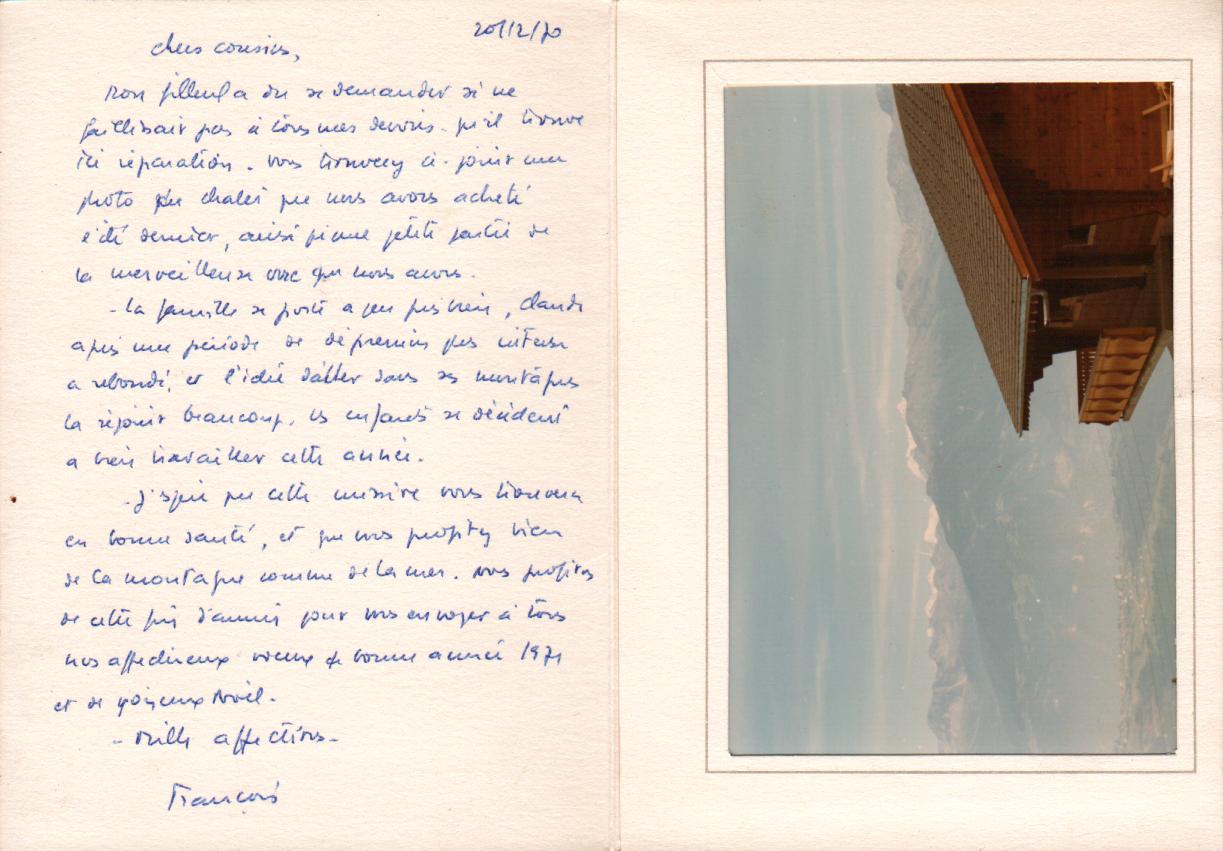 20/12/70
chers cousins,
Mon filleul a du se demander si je ne
faillissait pas à tous mes devoirs. qu'il trouve
ici réparation. vous trouverez ci-joint une
photo du chalet que nous avons acheté
l'été dernier, ainsi qu'une petite partie de
la merveilleuse vue que nous avons.
- La famille se porte a peu près bien, Claude
après une période de dépression très intense
a rebondi, et l'idée d'aller dans ses montagnes
la réjouit beaucoup. les enfants se décident
a bien travailler cette année.
- J'espère que cette missive vous trouvera
en bonne santé, et que vous profitez bien
de la montagne comme de la mer. nous profitons
de cette fin d'année pour vous envoyer à tous
nos affectueux voeux de bonne année 1971
et de joyeux Noël.
- Mille affections -
François